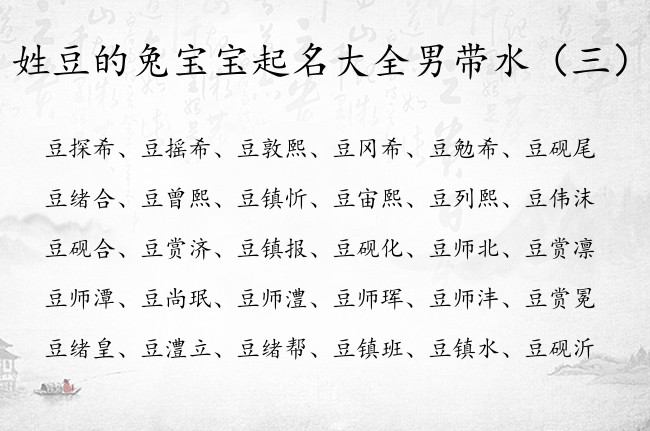 姓豆的兔宝宝起名大全男带水（三）
豆探希、豆摇希、豆敦熙、豆冈希、豆勉希、豆砚尾
豆绪合、豆曾熙、豆镇忻、豆宙熙、豆列熙、豆伟沫
豆砚合、豆赏济、豆镇报、豆砚化、豆师北、豆赏凛
豆师潭、豆尚珉、豆师澧、豆师珲、豆师沣、豆赏冕
豆绪皇、豆澧立、豆绪帮、豆镇班、豆镇水、豆砚沂